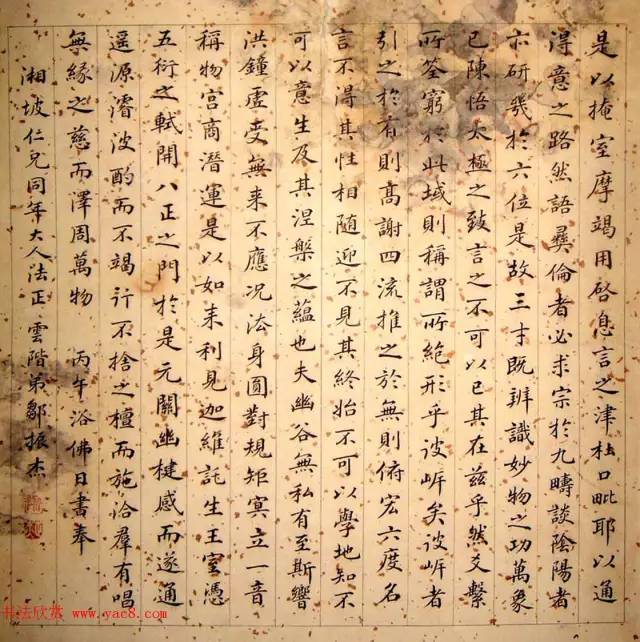 是以掩室摩竭用啓息言之津杜口毗耶以通
得意之路然語彝倫者必求宗於九疇談陰陽者
亦研幾於六位是故三才既辨識妙物之功萬象
已陳悟太極之致言之不可以已其在兹乎然爻繫
所筌窮於此域則稱謂所絕形乎彼岸矣彼岸者
引之於有則高謝四流推之於無則俯宏六度名
言不得其性相隨迎不見其終始不可以學地知不
可以意生及其涅槃之蘊也夫幽谷無私有至斯響
洪鐘虛受無來不應况法身圓對規矩冥立一音
稱物宮商潛運是以如来利見迦維託生王室憑
五衍之軾開八正之門於是元關幽楗感而遂通
遥源濬波酌而不竭行不捨之檀而施洽羣有唱
無緣之慈而澤周萬物 丙午浴佛日書奉
湘坡仁兄同年大人法正 雲階弟鄒振杰
书法欣赏 www.yac8.com